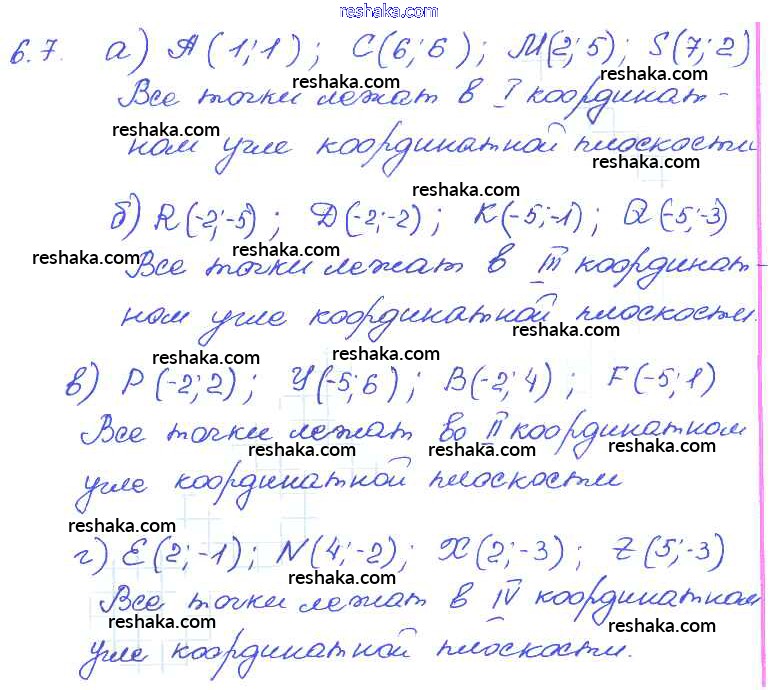 reshaka.com
6.7. а) A(1;1); C(6;6); M(2;5); S(7;2)
reshaka.com reshaka.com
Все точки лежат в I координат-
reshaka.com reshaka.com
ном угле координатной плоскости
reshaka.com
reshaka.com
б) R(-2;-5); D(-2;-2); K(-5;-1); Q(-5;-3)
reshaka.com reshaka.com reshaka.com
Все точки лежат в III координат-
ном угле координатной плоскости.
reshaka.com
reshaka.com reshaka.com
в) P(-2;2); Y(-5;6); B(-2;4); F(-5;1)
reshaka.com
Все точки лежат во II координатном
reshaka.com reshaka.com reshaka.com
угле координатной плоскости
reshaka.com
г) E(2;-1); N(4;-2); X(2;-3); Z(5;-3)
reshaka.com reshaka.com reshaka.com
Все точки лежат в IV координатном
reshaka.com reshaka.com
угле координатной плоскости.
reshaka.com